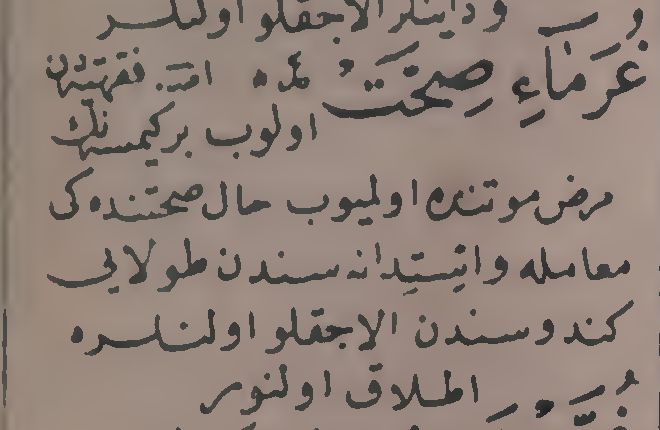 وداينلر الاجقلو اولنلر
غُرَمَاءِ صِحَّتْ امت فقهتدن
اولوب بر كیمسه نك
مرض موتنده اولمیوب حال صحتنده كی
معامله واستدانه سندن طولایی
كندوسندن الاجقلو اولنلره
اطلاق اولنور